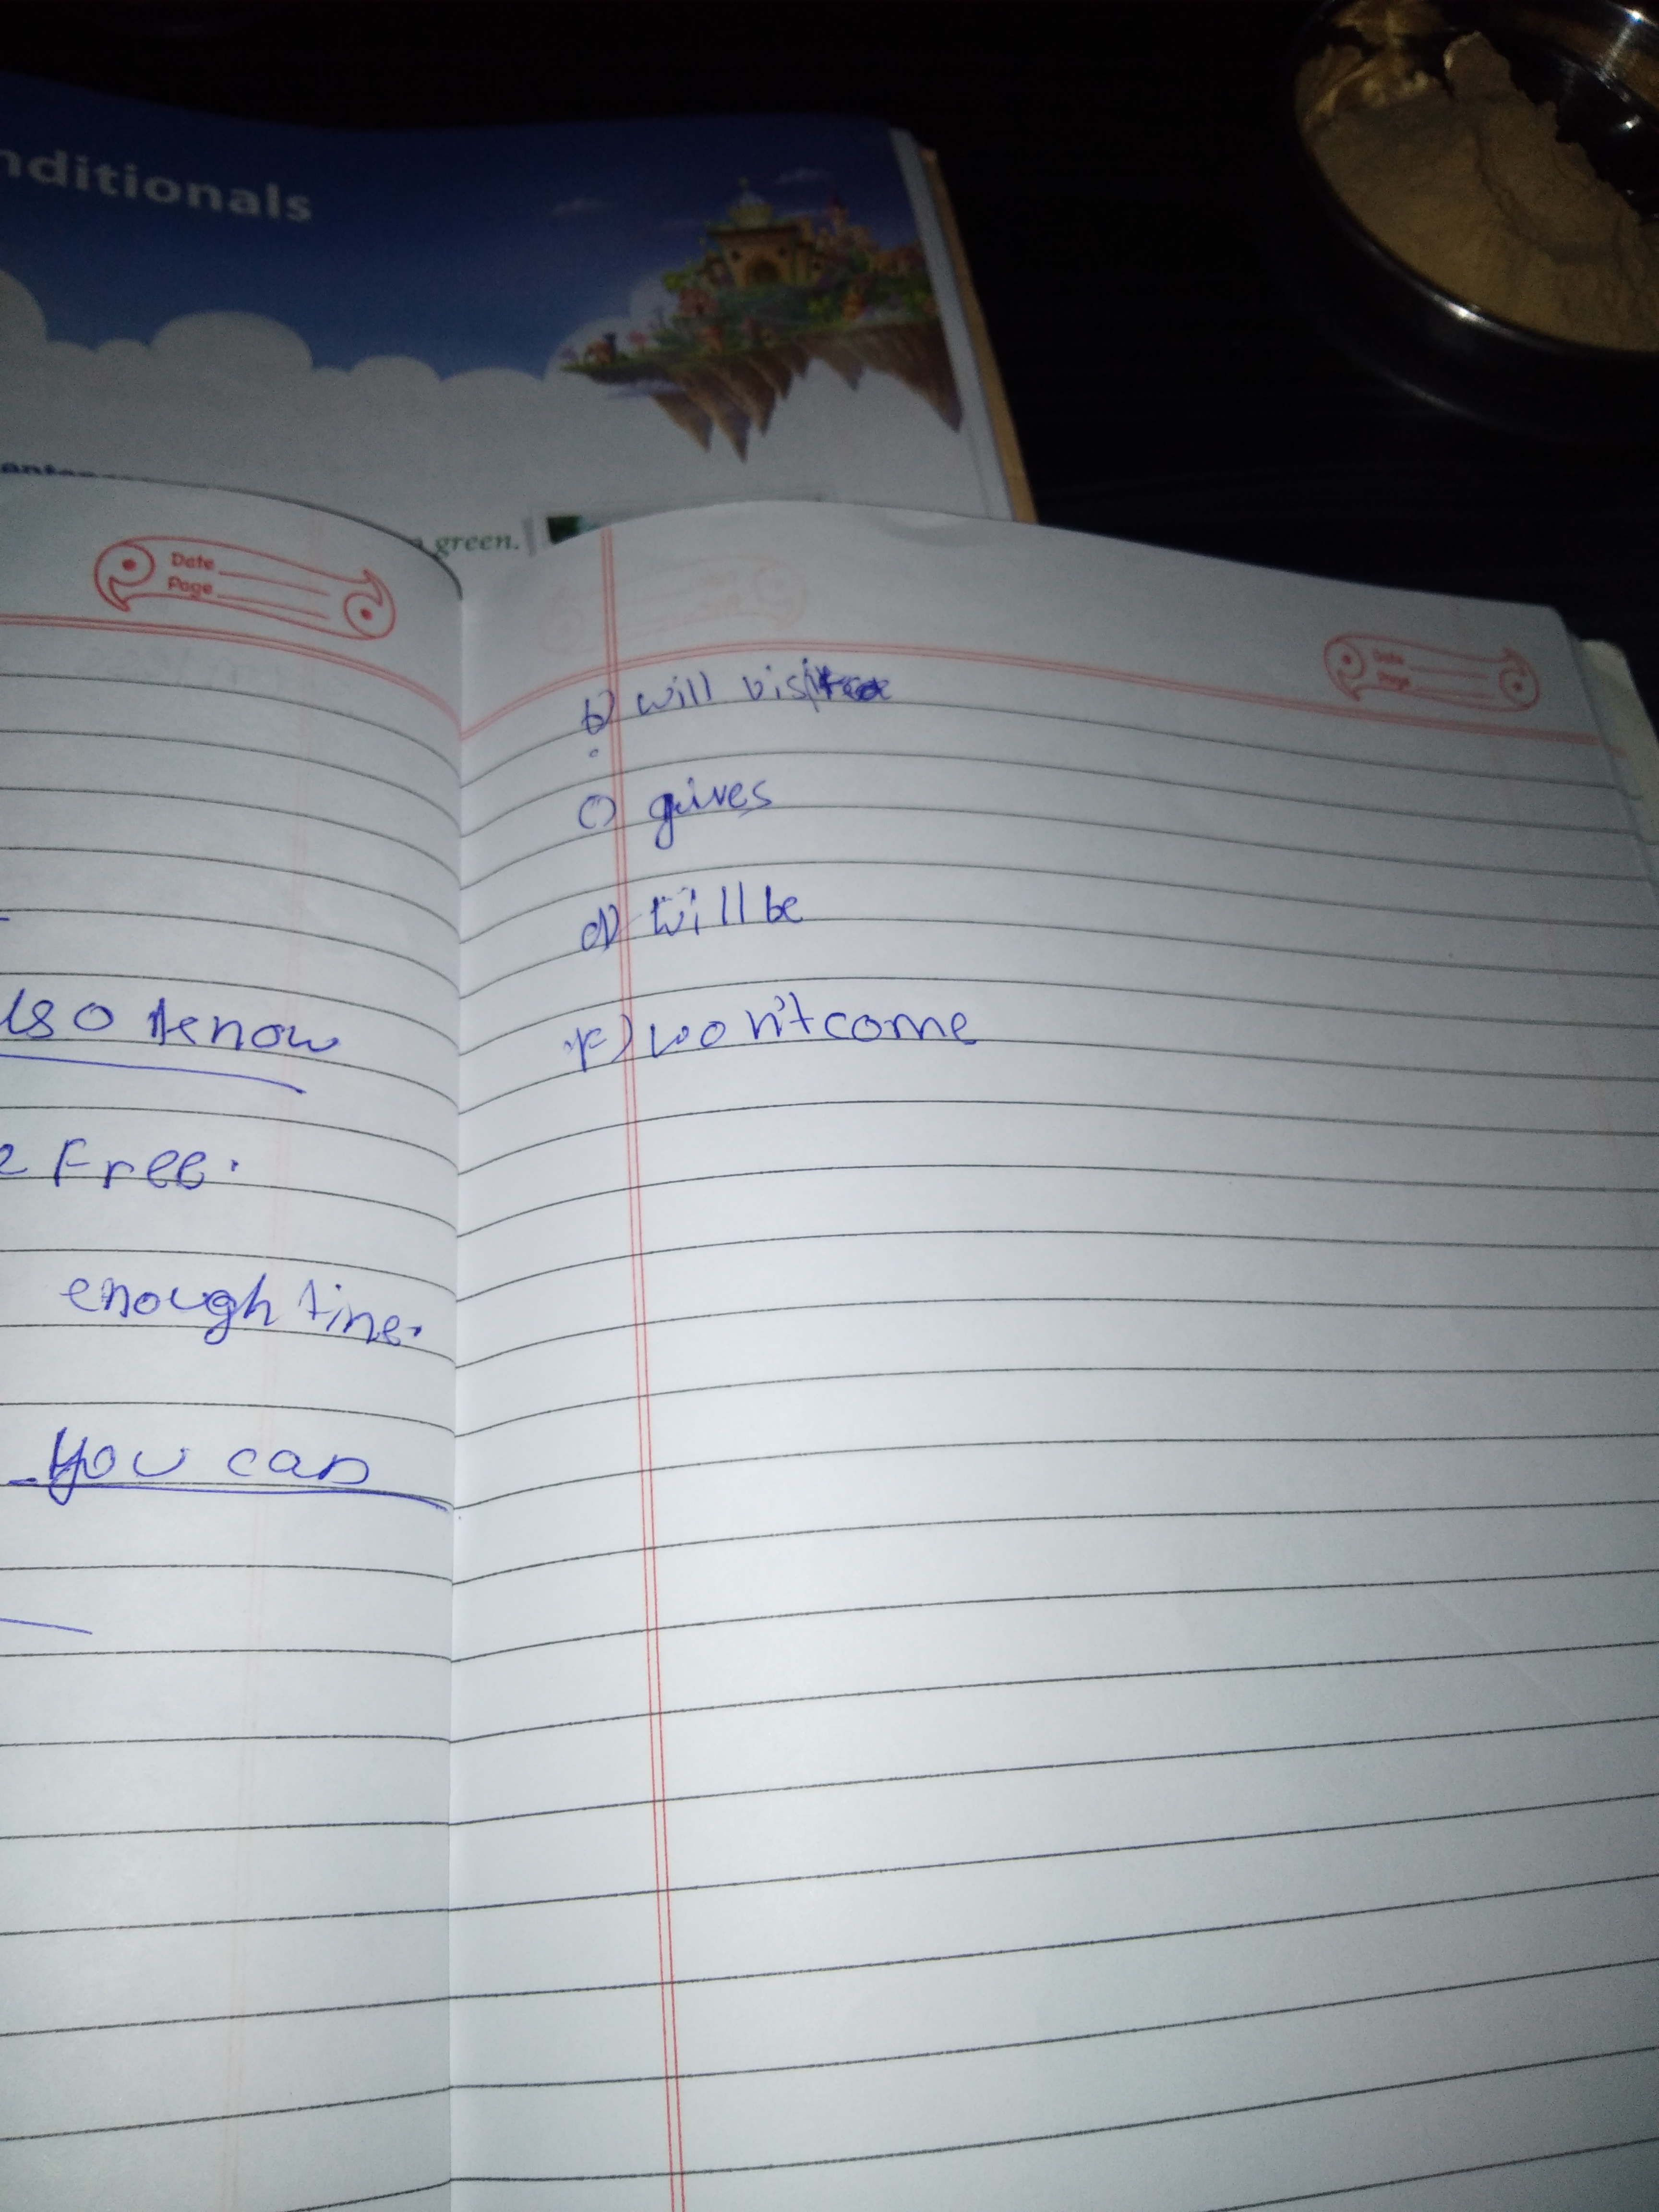 nditionals
green.
Date
Page
lso know
e Free.
enough time.
you can
Date
Page
b) will visit
c) gives
d) will be
F) won't come